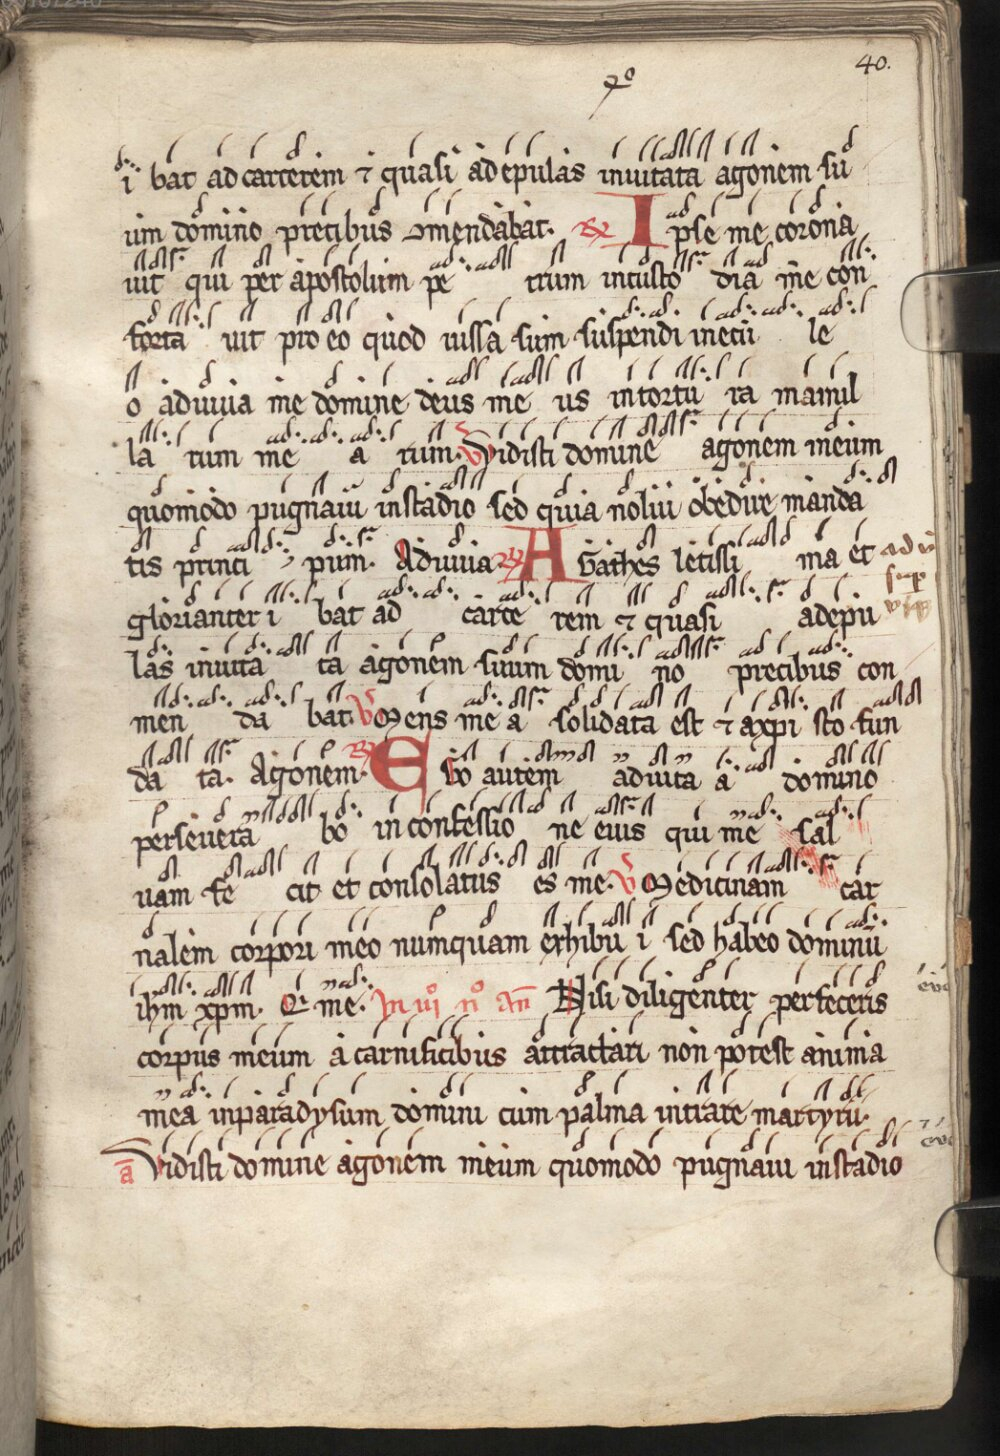 40.
i bat ad carcerem ⁊ quasi ad epulas inuitata agonem su
um domino precibus ɔmendabat. R Ipse me corona
uit qui per apostolum pe trum in custo dia me con
forta uit pro eo quod iussa sum suspendi in ecu le
o adiuua me domine deus me us in tortu ra mamil
la rum me a rum. V Vidisti domine agonem meum
quomodo pugnaui in stadio sed quia nolui obedire manda
tis princi pum. Adiuua R Agathes letissi ma et
glorianter i bat ad carce rem ⁊ quasi ad epu
las inuita ta agonem suum domi no precibus con
men da bat. V Mens mea solidata est ⁊ a xpi sto fun
da ta. Agonem. R Ego autem adiuta a domino
perseuera bo in confessio ne eius qui me sal
uam fe cit et consolatus es me. V Medicinam car
nalem corpori meo numquam exhibu i sed habeo dominū
ihm xpm. Q me. In iii n an Nisi diligenter perfeceris
corpus meum a carnificibus attractari non potest anima
mea in paradysum domini cum palma intrare martyrii.
a Vidisti domine agonem meum quomodo pugnaui in stadio